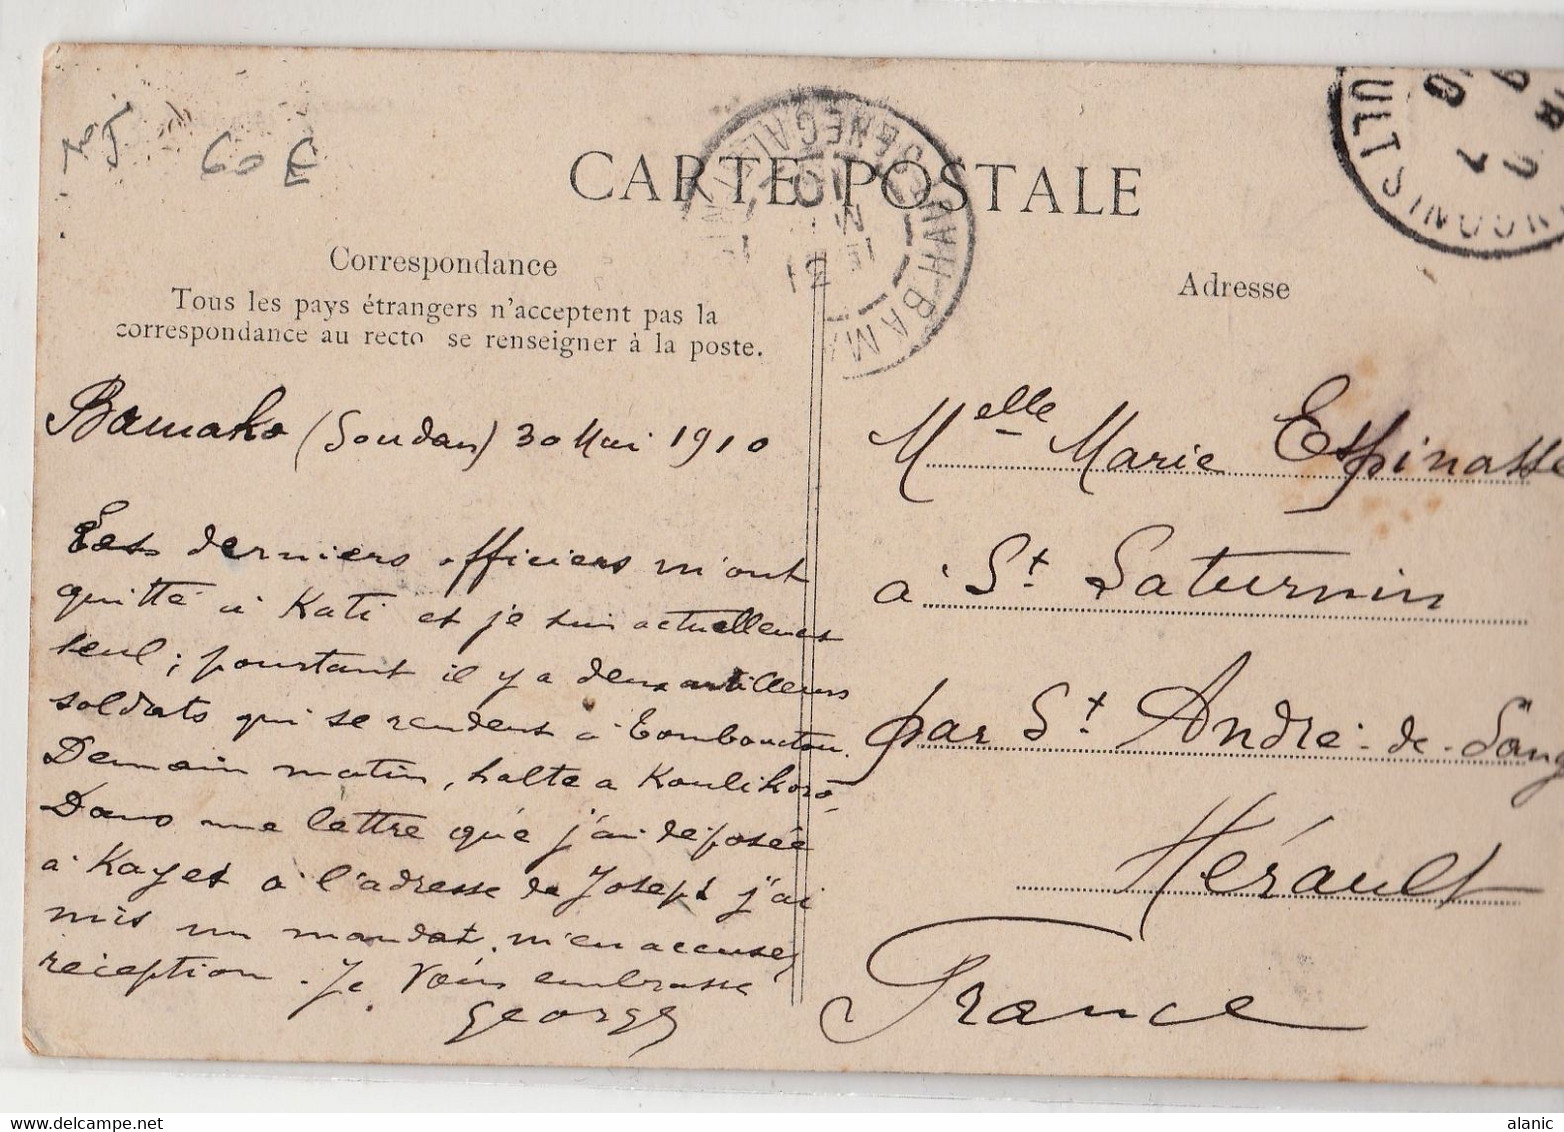 T
60 E
CARTE POSTALE
HAUT-SENEGAL
BAMA
31
MAI
10
Correspondance
Tous les pays étrangers n'acceptent pas la
correspondance au recto se renseigner à la poste.
Adresse
Bamako (Soudan) 30 Mai 1910
Les derniers officiers m'ont
quitté à Kati et je suis actuellement
seul; pourtant il y a deux artilleurs
soldats qui se rendent à Tombouctou.
Demain matin, halte à Koulikoro.
Dans une lettre que j'ai déposée
à Kayes à l'adresse de Joseph j'ai
mis un mandat. m'en accusez
réception. Je vous embrasse
Georges
Melle Marie Espinasse
à St Saturnin
par St André-de-Sang
Hérault
France
delcampe.net
alanic